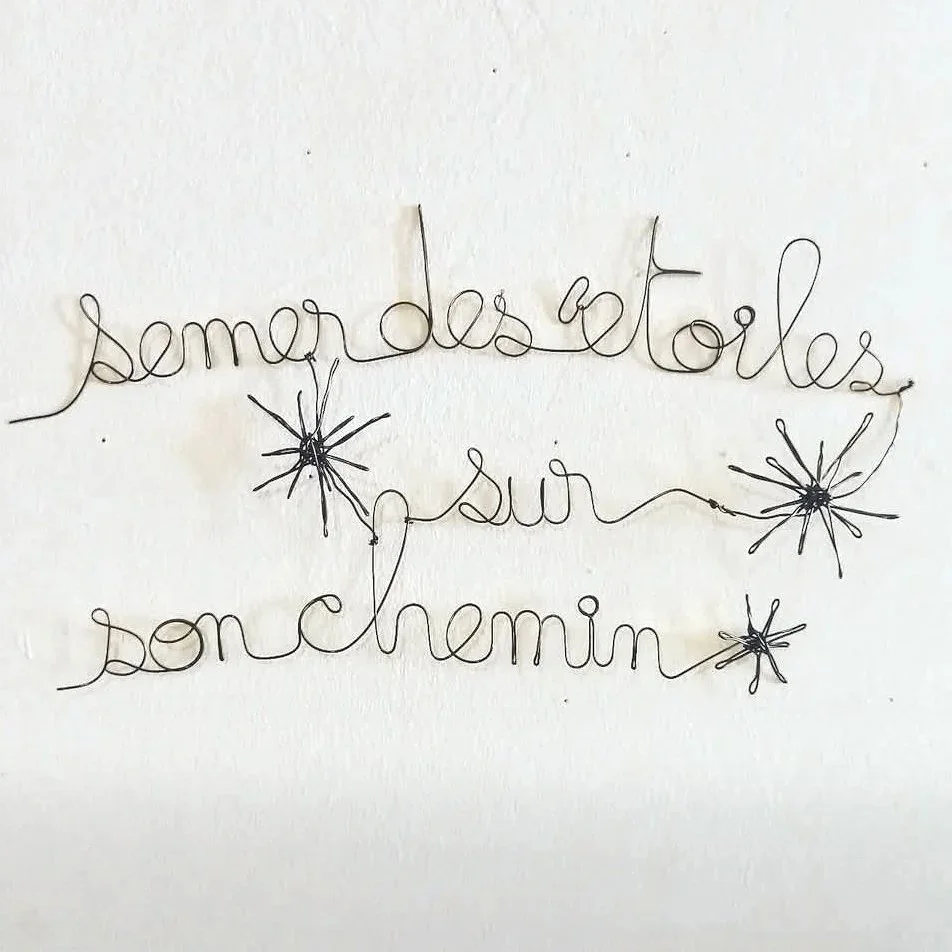 semer des étoiles
sur
son chemin